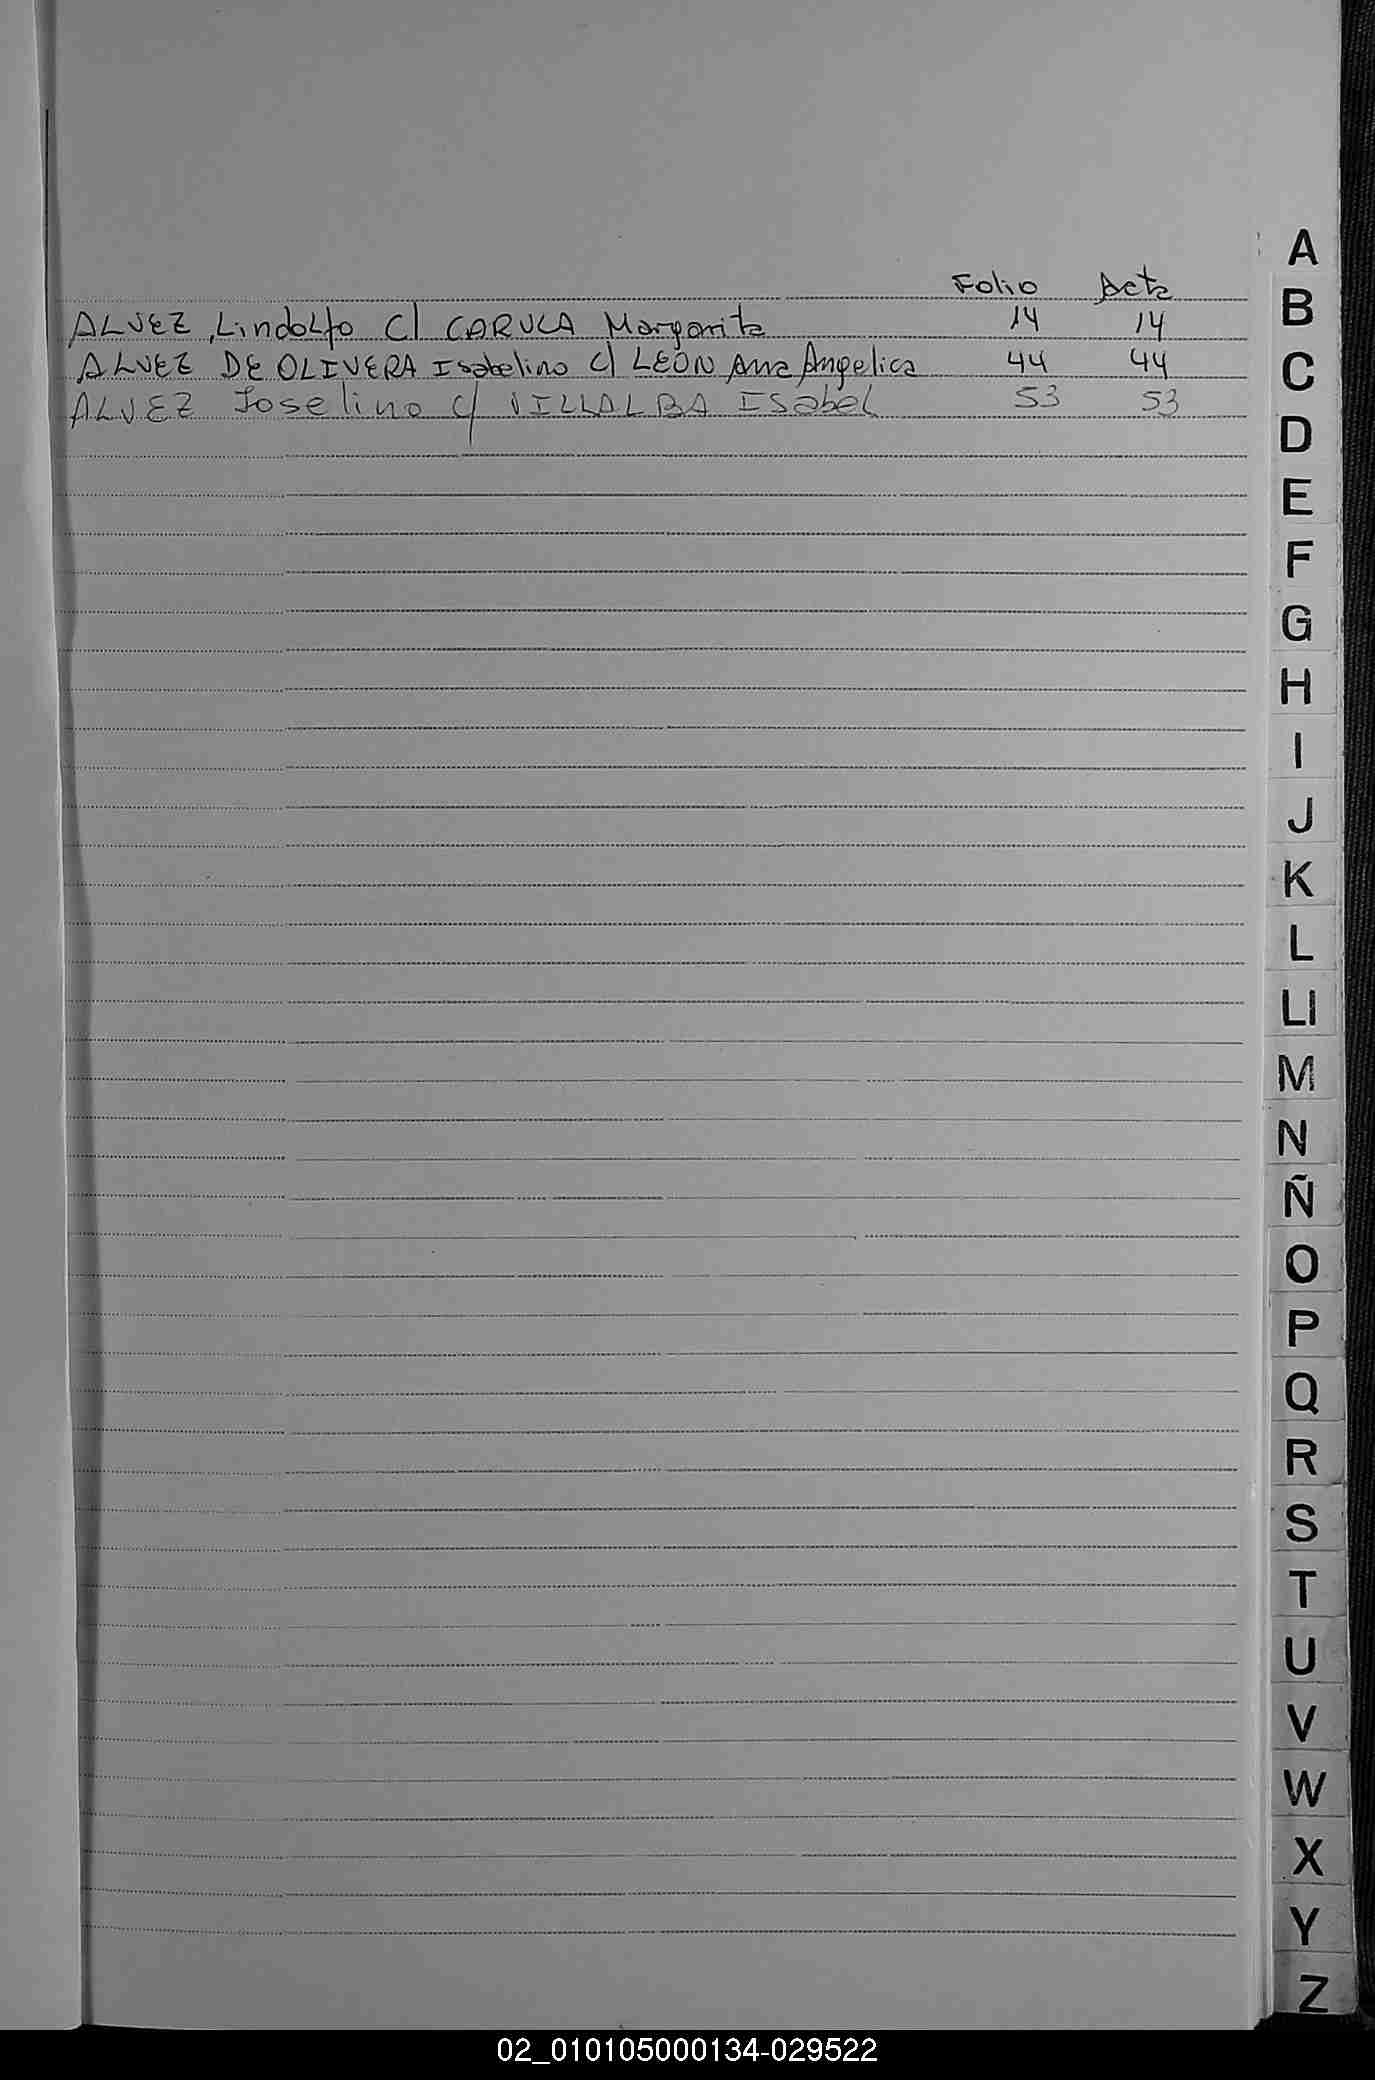 Folio Acta
ALVEZ, Lindolfo C/ CARULA Margarita 14 14
ALVEZ DE OLIVERA Isabelino C/ LEON Ana Angelica 44 44
ALVEZ Joselino C/ VILLALBA ISabel 53 53
A
B
C
D
E
F
G
H
I
J
K
L
Ll
M
N
Ñ
O
P
Q
R
S
T
U
V
W
X
Y
Z
02_010105000134-029522